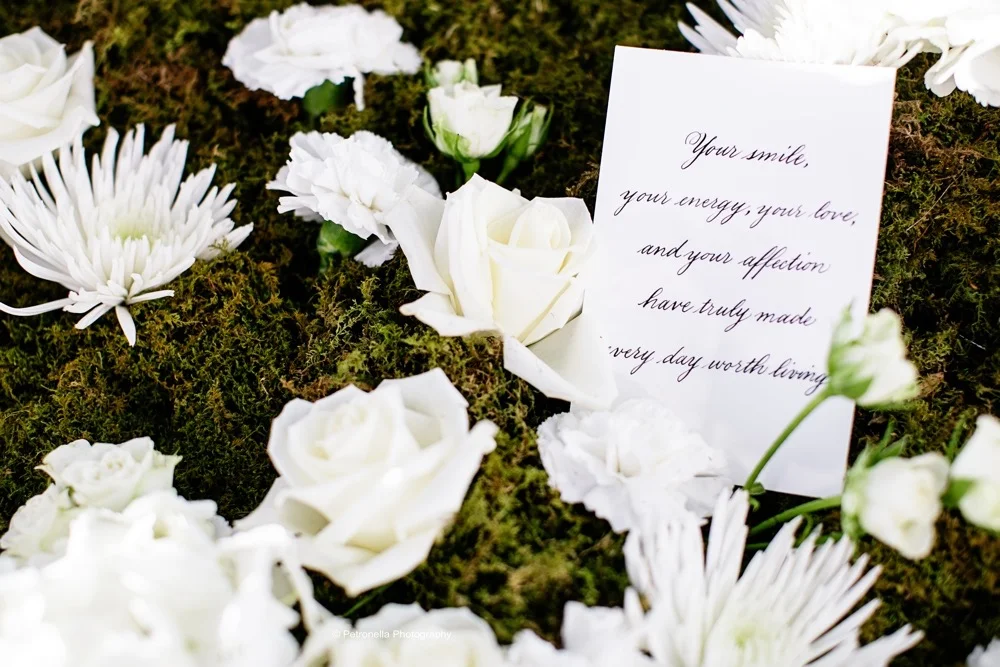 Your smile,
your energy, your love,
and your affection
have truly made
every day worth living
© Petronella Photography